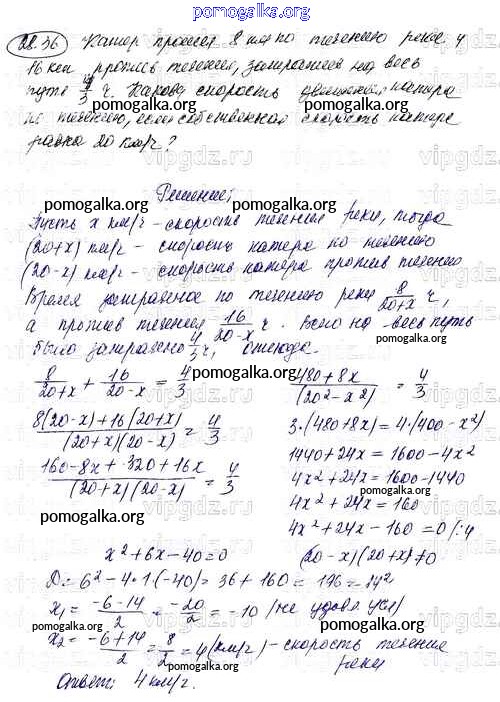 pomogalka.org
28.36 Катер прошел 8 км по течению реки и
16 км против течения, затратив на весь
путь 4/3 ч. Какова скорость движения катера
по течению, если собственная скорость катера
равна 20 км/ч?
Решение:
Пусть x км/ч - скорость течения реки, тогда
(20+x) км/ч - скорость катера по течению
(20-x) км/ч - скорость катера против течения
Время затраченое по течению реки 8/(20+x) ч,
а против течения 16/(20-x) ч. Всего на весь путь
было затрачено 4/3 ч, отсюда.
8/(20+x) + 16/(20-x) = 4/3
(8(20-x)+16(20+x))/((20+x)(20-x)) = 4/3
(160-8x+320+16x)/((20+x)(20-x)) = 4/3
(480+8x)/(20²-x²) = 4/3
3·(480+8x)=4·(400-x²)
1440+24x=1600-4x²
4x²+24x=1600-1440
4x²+24x=160
4x²+24x-160=0/:4
x²+6x-40=0
(20-x)(20+x)≠0
D=6²-4·1·(-40)=36+160=196=14²
x₁=(-6-14)/2=-20/2=-10 (не удовл. усл)
x₂=(-6+14)/2=8/2=4(км/ч)-скорость течения
реки
Ответ: 4 км/ч.
pomogalka.org
vipgdz.ru